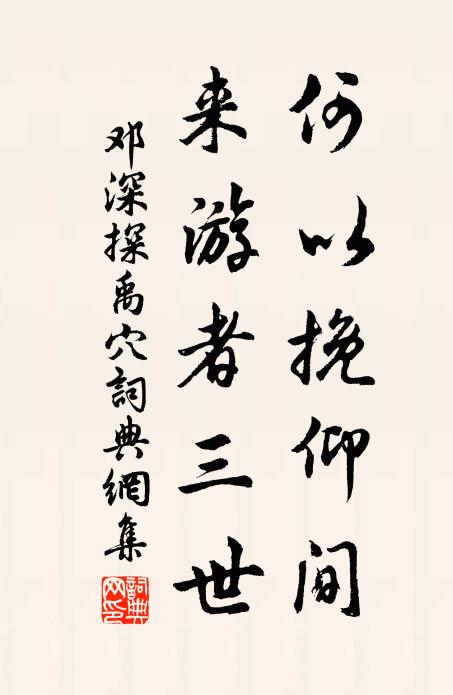 何以挽仰间
来游者三世
邓深探禹穴詞典網集
詞典網印